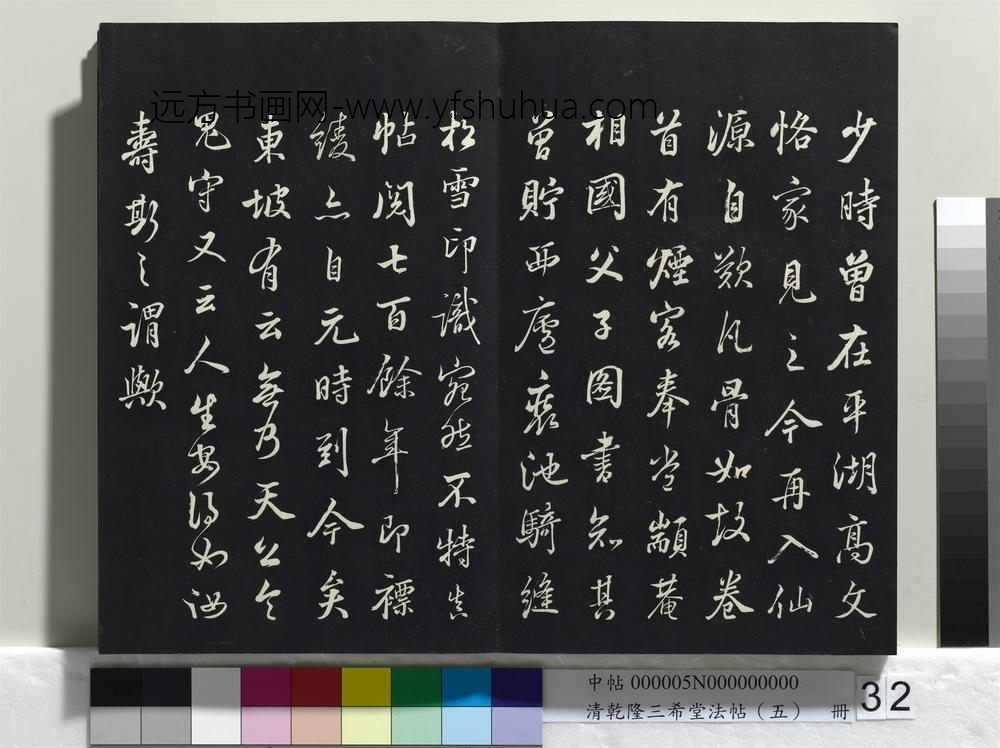 少時曾在平湖高文
恪家見之今再入仙
源自歎凡骨如故卷
首有煙客奉尝顓菴
相國父子圖書知其
曾貯西廬褱池騎縫
松雪印識宛然不特真
帖閱七百餘年即褾
綾亦自元時到今矣
東坡有云無乃天公令
鬼守又云人生安得如汝
壽斯之謂歟
远方书画网-www.yfshuhua.com
中帖 000005N000000000
清乾隆三希堂法帖（五） 冊
32